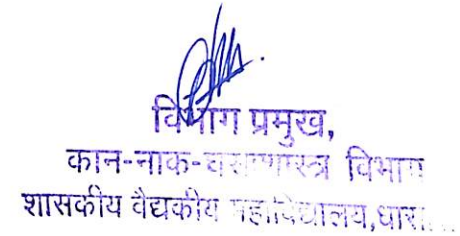 विभाग प्रमुख,
कान-नाक-घसाशास्त्र विभाग
शासकीय वैद्यकीय महाविद्यालय,